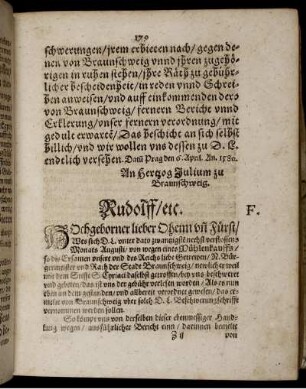 179
schwerungen/ jrem erbieten nach/ gegen de-
nen von Braunschweig vnnd jhren zugehö-
rigen in ruhen stehen/ jhre Räth zu gebühr-
licher bescheidenheit/ in reden vnnd Schrei-
ben anweisen/ vnd auff einkommenden ders
von Braunschweig/ fernern Bericht vnnd
Erklerung/ vnser fernern verordnung/ mit
gedult erwarte/ Das beschicht an sich selbst
billich/ vnd wir wollen vns dessen zu D. L.
endtlich versehen. Datū Prag den 6. April. An. 1580.
An Hertzog Julium zu
Braunschweig.
Rudolff/ etc. F.
Hochgeborner lieber Ohenn vñ Fürst/
Wes sich D. L. vnter dato zwantzigste nechst verflossens
Monats Augusti, von wegen eines Mühlenkauffs/
so die Ersamen vnsere vnd des Reichs liebe Getrewen/ N. Bür-
germeister vnd Rath der Stadt Braunschweig/ newlicher weil
mit dem Stifft S. Cyriaci daselbst getroffen/ bey vns beschweret
vnd gebeten/ das ist vns der gebühr vorlesen worden/ Als es nun
alles vom Braunschweig vber solch D. L. Beschwerungsschrifft
vernommen werden sollen.
So kömpt vns von derselben dieser ebenmessiger Hand-
lung wegen/ ausführlicher Bericht ein/ darinnen bemelte
Z ij von